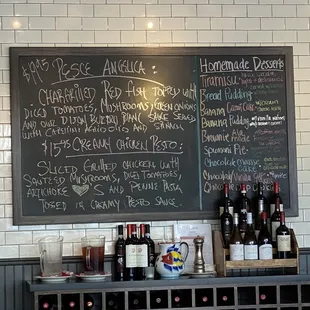 $19.95 Pesce Angelica:
Chargrilled Red Fish topped with
Diced Tomatoes, Mushrooms, Green onions
and our Dijon Butter Blanc Sauce Served
with Capellini Aglio Olio and Spinach
$15.95 Creamy Chicken Pesto:
Sliced Grilled chicken with
Sauteed Mushrooms, Diced Tomatoes,
Artichoke ♥'s and Penne Pasta
Tossed in Creamy Pesto Sauce
Homemade Desserts
Tiramisu
Bread Pudding
Banana
Carrot Cake
Banana Pudding
Brownie
Spumoni Pie
Chocolate
Chocolate